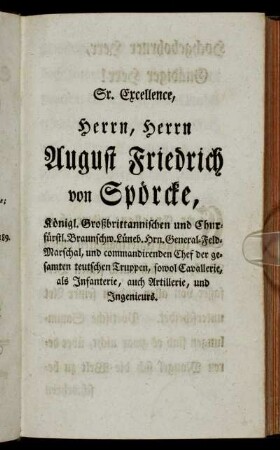 Sr. Excellence,
Herrn, Herrn
August Friedrich
von Spörcke,
Königl. Großbrittannischen und Chur-
fürstl. Braunschw. Lüneb. Hrn. General-Feld-
Marschal, und commandirenden Chef der ge-
samten teutschen Truppen, sowol Cavallerie,
als Infanterie, auch Artillerie, und
Ingenieurs.